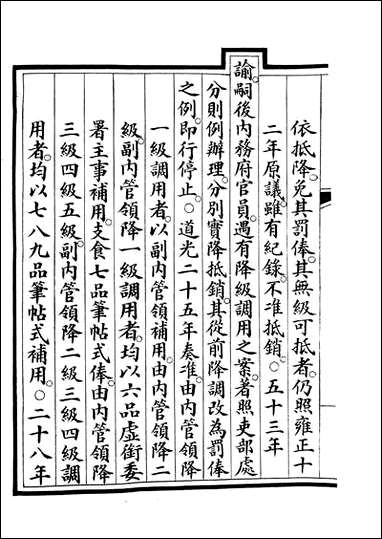 依抵降。免其罰俸。其無級可抵者。仍照雍正十
二年原議。雖有紀錄。不准抵銷。○五十三年
諭。嗣後內務府官員。遇有降級調用之案。著照吏部處
分則例辦理。分別實降抵銷。其從前降調改為罰俸
之例。即行停止。○道光二十五年奏准。由內管領降
一級調用者。以副內管領補用。由內管領降二
級。副內管領降一級調用者。均以六品虛銜委
署主事補用。支食七品筆帖式俸。由內管領降
三級四級五級。副內管領降二級三級四級調
用者。均以七八九品筆帖式補用。○二十八年